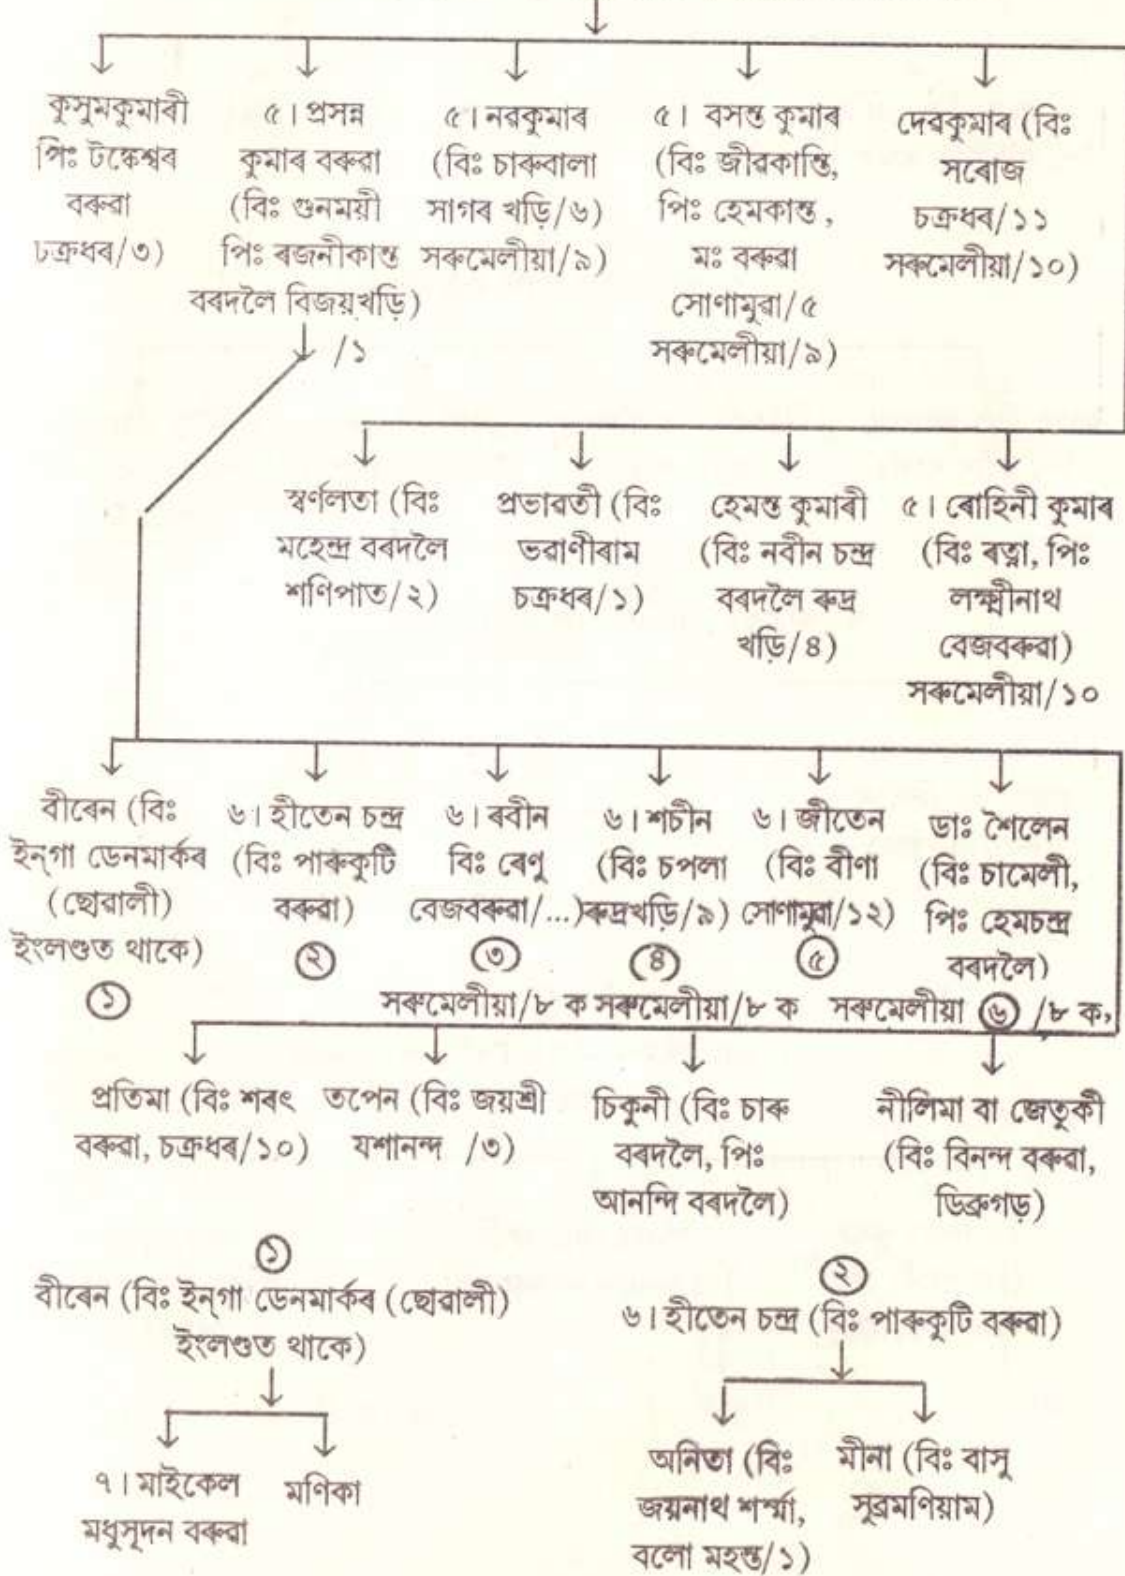 কুসুমকুমাৰী
পিঃ টঙ্কেশ্বৰ
বৰুৱা
চক্ৰধৰ/৩)
৫। প্ৰসন্ন
কুমাৰ বৰুৱা
(বিঃ গুনময়ী
পিঃ ৰজনীকান্ত
বৰদলৈ বিজয়খড়ি)
/১
৫। নৱকুমাৰ
(বিঃ চাৰুবালা
সাগৰ খড়ি/৬)
সৰুমেলীয়া/৯)
৫। বসন্ত কুমাৰ
(বিঃ জীৱকান্তি,
পিঃ হেমকান্ত,
মঃ বৰুৱা
সোণামুৱা/৫
সৰুমেলীয়া/৯)
দেৱকুমাৰ (বিঃ
সৰোজ
চক্ৰধৰ/১১
সৰুমেলীয়া/১০)
স্বৰ্ণলতা (বিঃ
মহেন্দ্ৰ বৰদলৈ
শণিপাত/২)
প্ৰভাৱতী (বিঃ
ভৱাণীৰাম
চক্ৰধৰ/১)
হেমন্ত কুমাৰী
(বিঃ নবীন চন্দ্ৰ
বৰদলৈ ৰুদ্ৰ
খড়ি/৪)
৫। ৰোহিনী কুমাৰ
(বিঃ ৰত্না, পিঃ
লক্ষ্মীনাথ
বেজবৰুৱা)
সৰুমেলীয়া/১০
বীৰেন (বিঃ
ইন্গা ডেনমাৰ্কৰ
(ছোৱালী)
ইংলণ্ডত থাকে)
১
৬। হীতেন চন্দ্ৰ
(বিঃ পাৰুকুটি
বৰুৱা)
২
৬। ৰবীন
বিঃ ৰেণু
বেজবৰুৱা/...)
৩
সৰুমেলীয়া/৮ ক
৬। শচীন
(বিঃ চপলা
ৰুদ্ৰখড়ি/৯)
৪
সৰুমেলীয়া/৮ ক
৬। জীতেন
(বিঃ বীণা
সোণামুৱা/১২)
৫
ডাঃ শৈলেন
(বিঃ চামেলী,
পিঃ হেমচন্দ্ৰ
বৰদলৈ)
সৰুমেলীয়া ৬ /৮ ক,
প্ৰতিমা (বিঃ শৰৎ
বৰুৱা, চক্ৰধৰ/১০)
তপেন (বিঃ জয়শ্ৰী
যশানন্দ /৩)
চিকুনী (বিঃ চাৰু
বৰদলৈ, পিঃ
আনন্দি বৰদলৈ)
নীলিমা বা জেতুকী
(বিঃ বিনন্দ বৰুৱা,
ডিব্ৰুগড়)
১
বীৰেন (বিঃ ইন্গা ডেনমাৰ্কৰ (ছোৱালী)
ইংলণ্ডত থাকে)
৭। মাইকেল
মধুসূদন বৰুৱা
মণিকা
২
৬। হীতেন চন্দ্ৰ (বিঃ পাৰুকুটি বৰুৱা)
অনিতা (বিঃ
জয়নাথ শৰ্ম্মা,
বলো মহন্ত/১)
মীনা (বিঃ বাসু
সুব্ৰমণিয়াম)